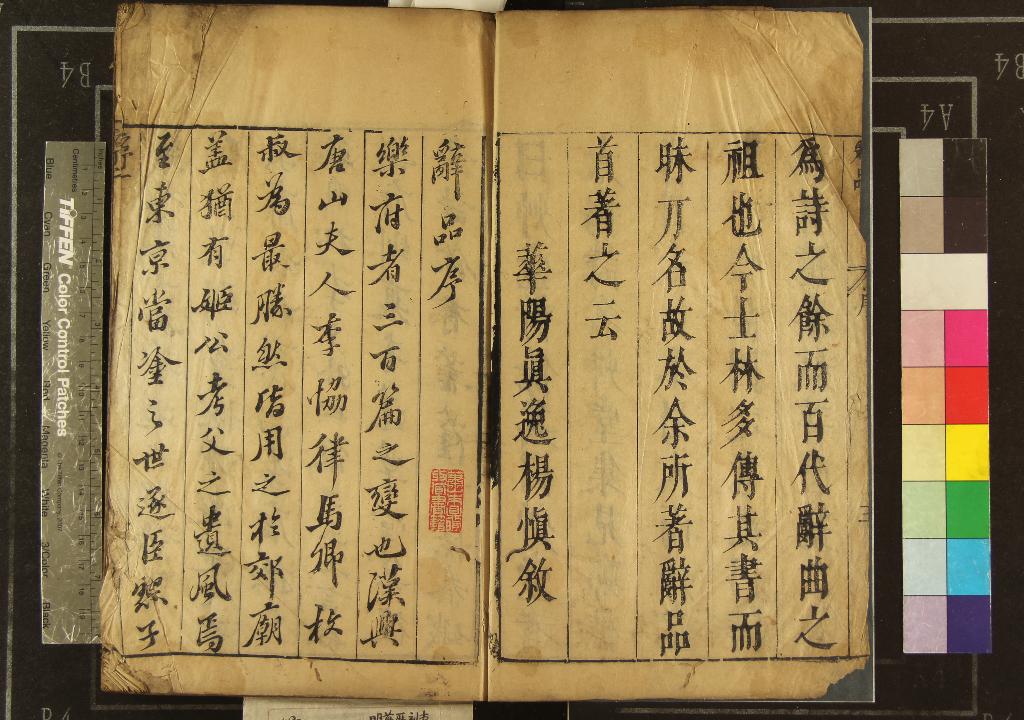 為詩之餘而百代辭曲之
祖也今士林多傳其書而
昧丌名故於余所著辭品
首著之云
華陽眞逸楊愼敘
辭品序
樂府者三百篇之變也漢興
唐山夫人李協律馬卿枚
叔為最勝然皆用之於郊廟
蓋猶有姬公考父之遺風焉
至東京當塗之世遂臣
子
B4
A4
B4
TIFFEN Color Control Patches
Centimetres
Inches
Blue
Cyan
Green
Yellow
Red
Magenta
White
3/Color
Black